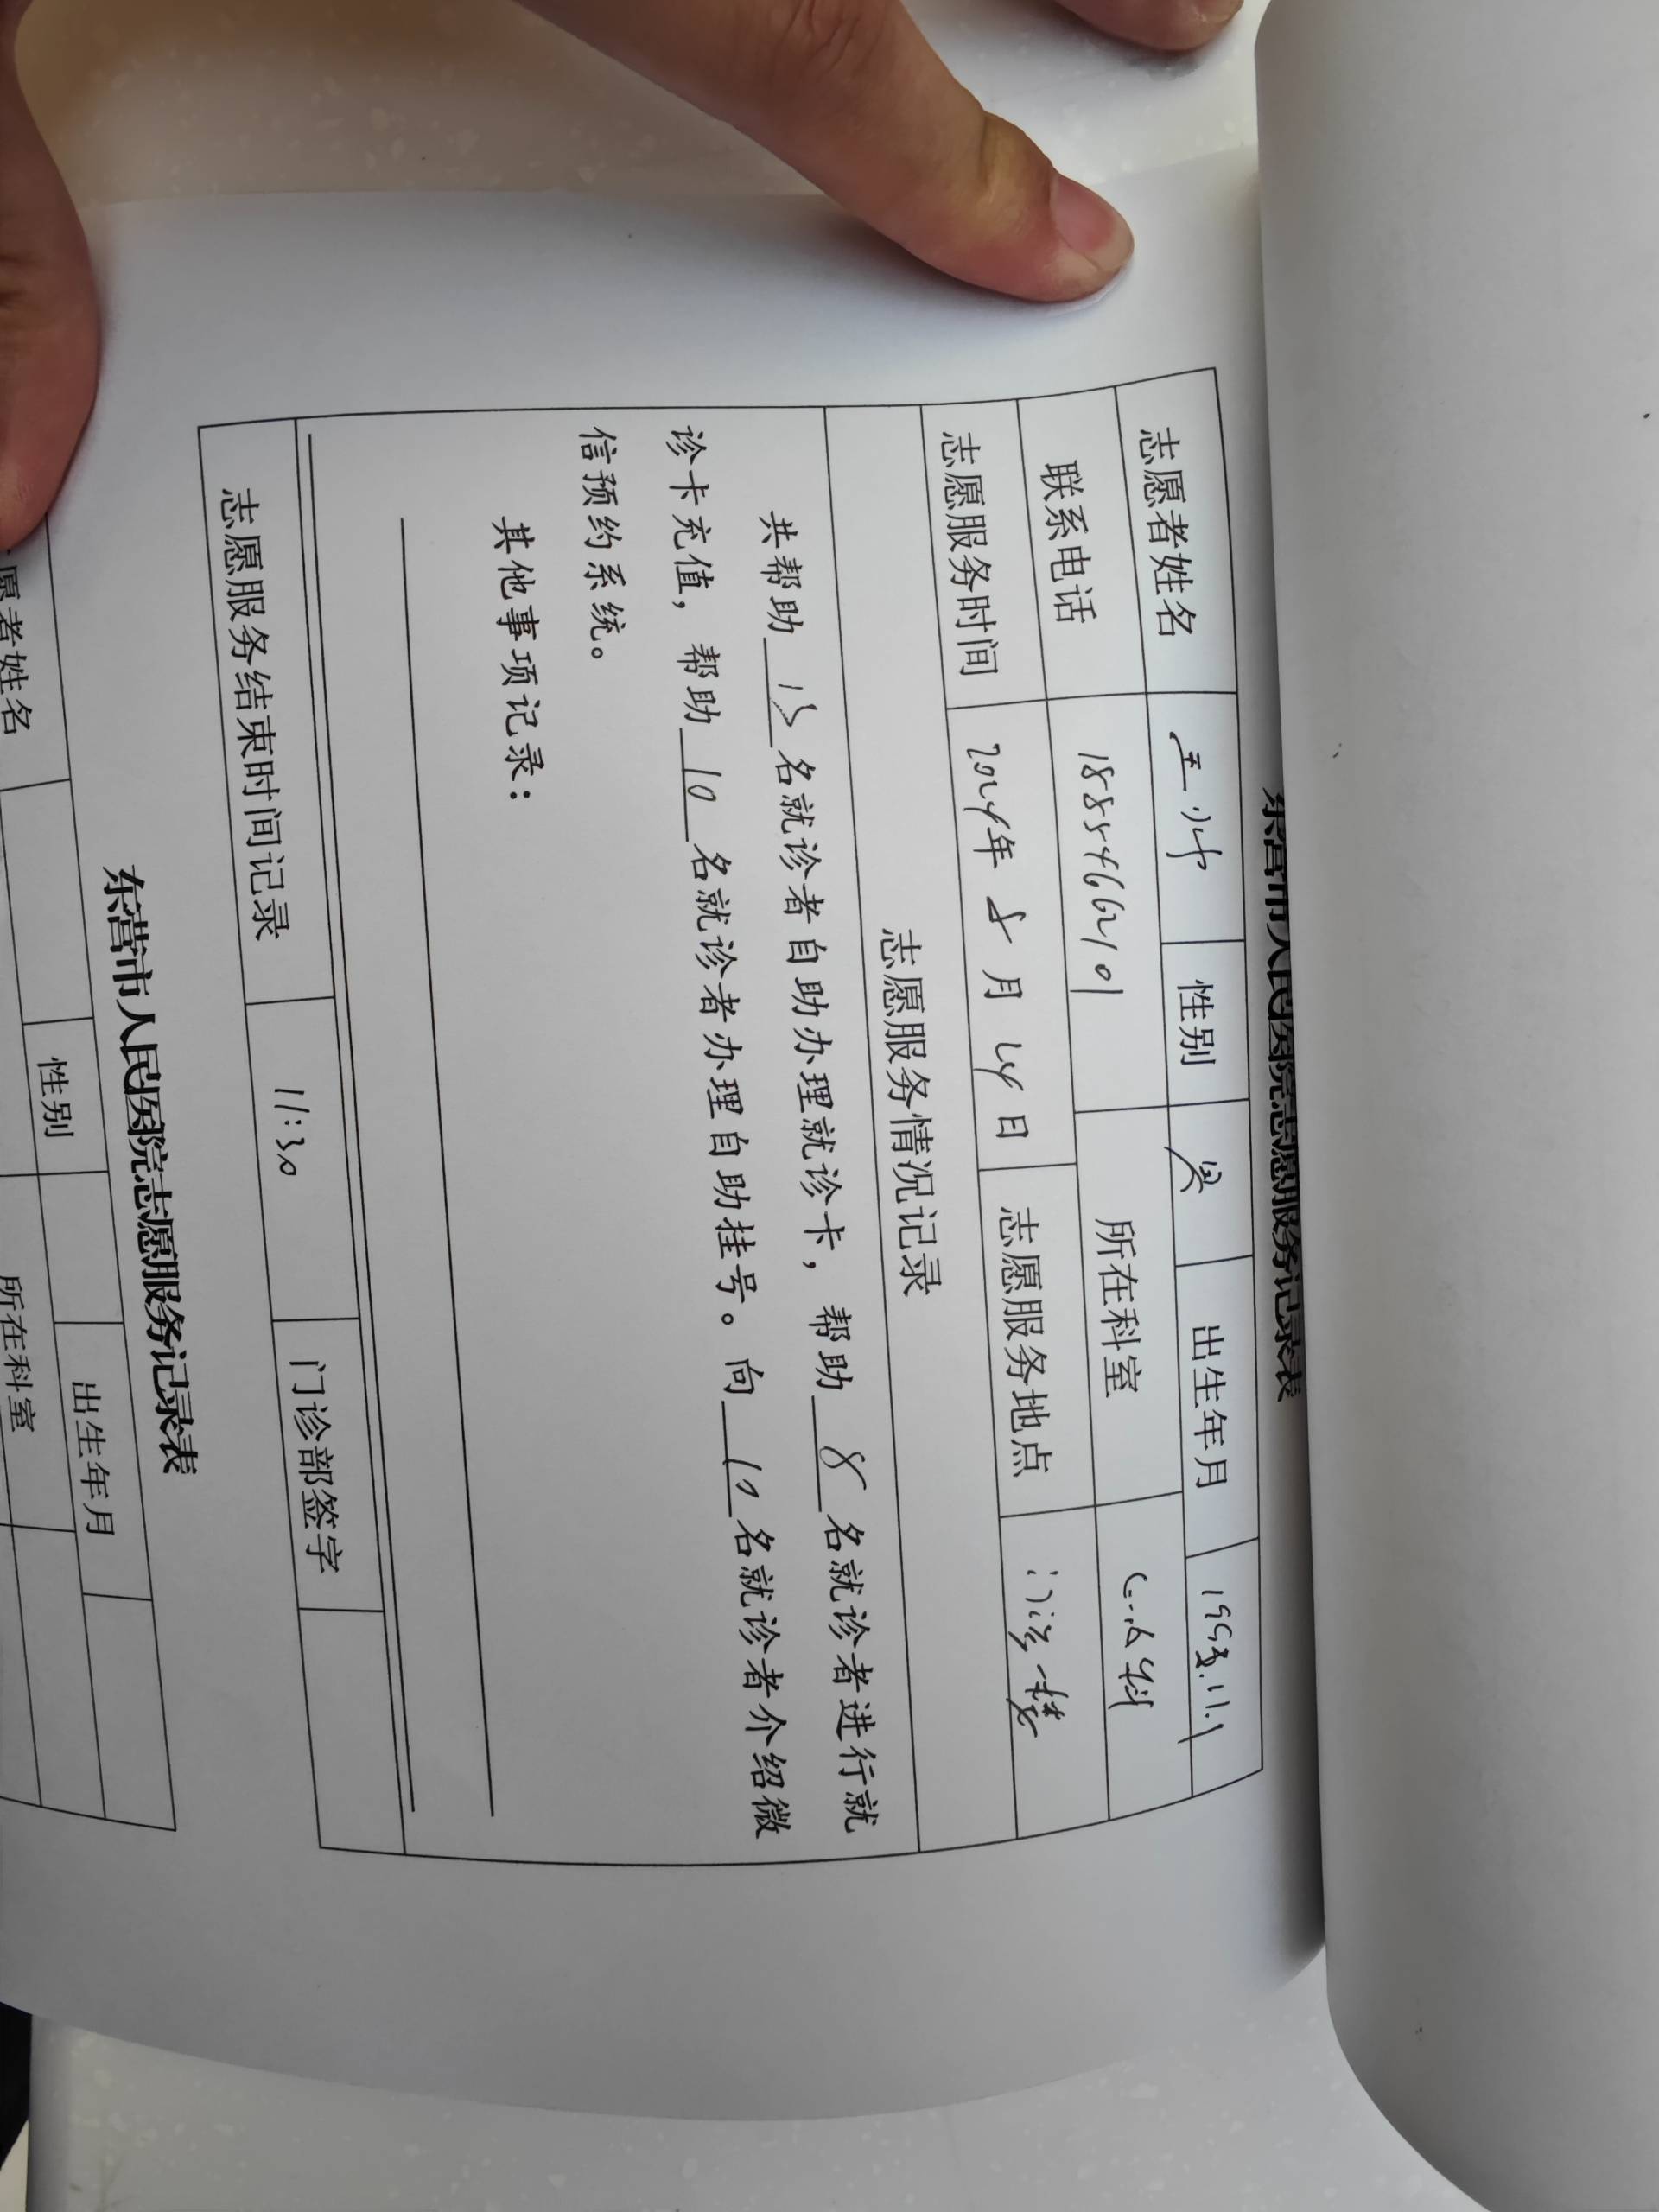 东营市人民医院志愿服务记录表
志愿者姓名 性别 男 出生年月
联系电话 18854662101 所在科室
志愿服务时间 2024年 8 月 24 日 志愿服务地点 门诊一楼
志愿服务情况记录
共帮助 15 名就诊者自助办理就诊卡，帮助 8 名就诊者进行就
诊卡充值，帮助 10 名就诊者办理自助挂号。向 10 名就诊者介绍微
信预约系统。
其他事项记录：
志愿服务结束时间记录 11:30 门诊部签字
东营市人民医院志愿服务记录表
愿者姓名 性别 出生年月
所在科室